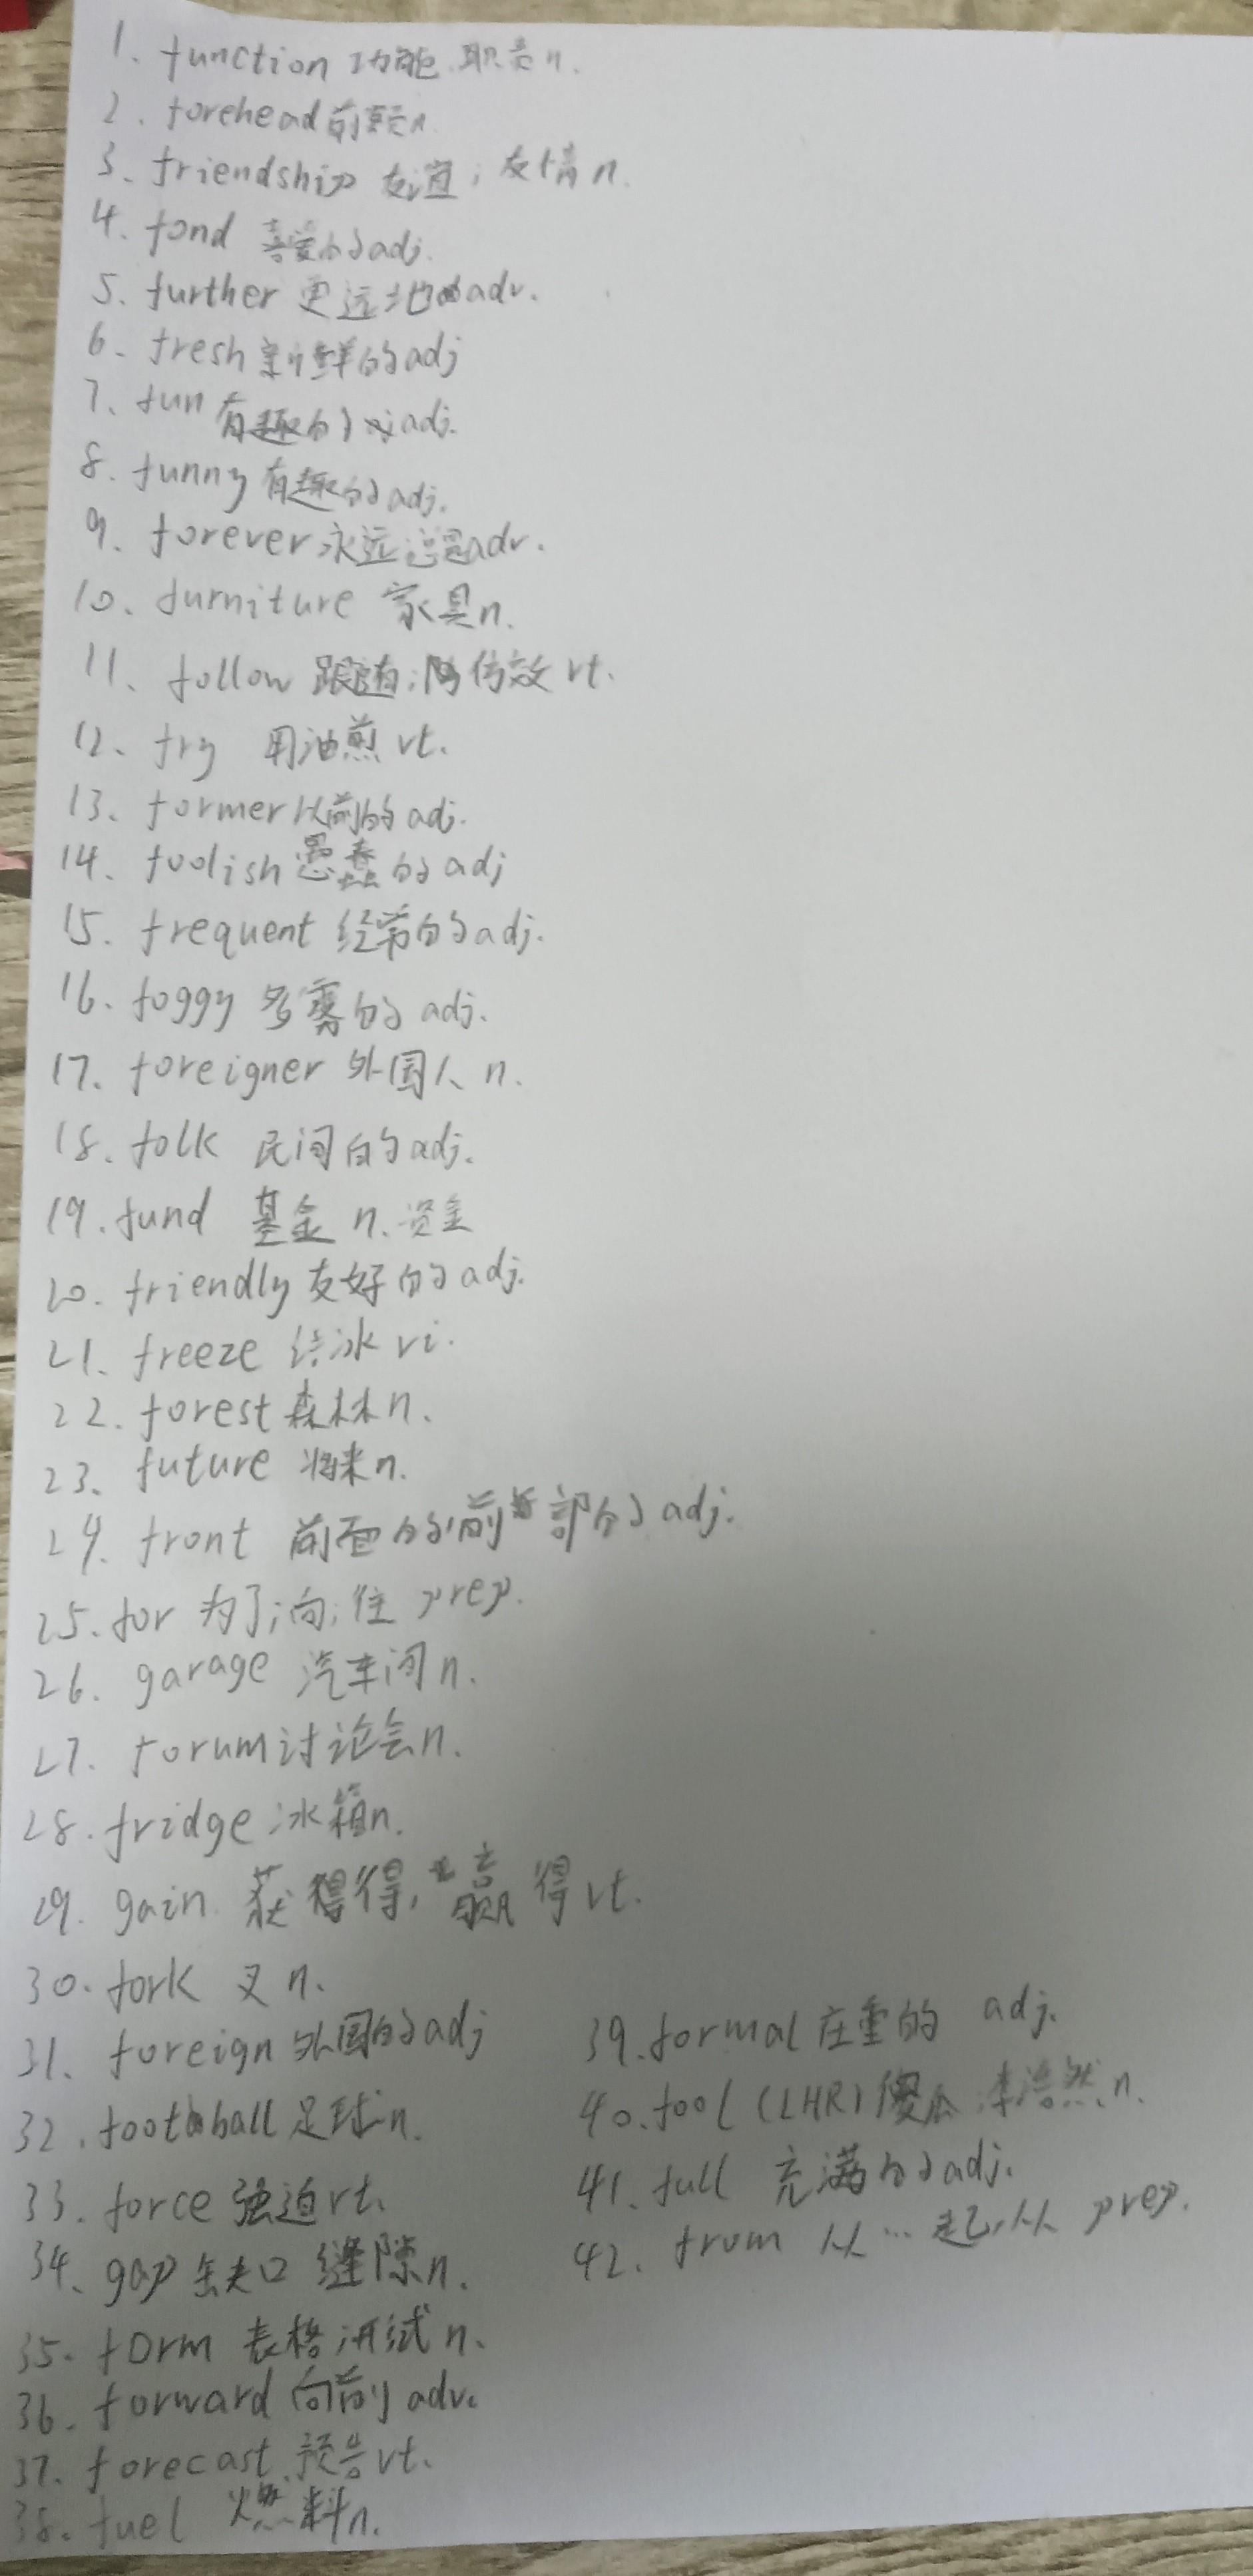 1. function 功能 职责 n.
2. forehead 前额 n.
3. friendship 友谊；友情 n.
4. fond 喜爱的 adj.
5. further 更远地 adv.
6. fresh 新鲜的 adj
7. fun 有趣的 adj.
8. funny 有趣的 adj.
9. forever 永远 总是 adv.
10. furniture 家具 n.
11. follow 跟随；仿效 vt.
12. fry 用油煎 vt.
13. former 以前的 adj.
14. foolish 愚蠢的 adj
15. frequent 经常的 adj.
16. foggy 多雾的 adj.
17. foreigner 外国人 n.
18. folk 民间的 adj.
19. fund 基金 n. 资金
20. friendly 友好的 adj.
21. freeze 结冰 vi.
22. forest 森林 n.
23. future 将来 n.
24. front 前面的；前部的 adj.
25. for 为了；向；往 prep.
26. garage 汽车间 n.
27. forum 讨论会 n.
28. fridge 冰箱 n.
29. gain 获得，赢得 vt.
30. fork 叉 n.
31. foreign 外国的 adj
32. football 足球 n.
33. force 强迫 vt.
34. gap 缺口 缝隙 n.
35. form 表格 n.
36. forward 向前 adv.
37. forecast 预告 vt.
38. fuel 燃料 n.
39. formal 庄重的 adj.
40. fool (LHR) 傻瓜 李浩然 n.
41. full 充满的 adj.
42. from 从…起，从 prep.